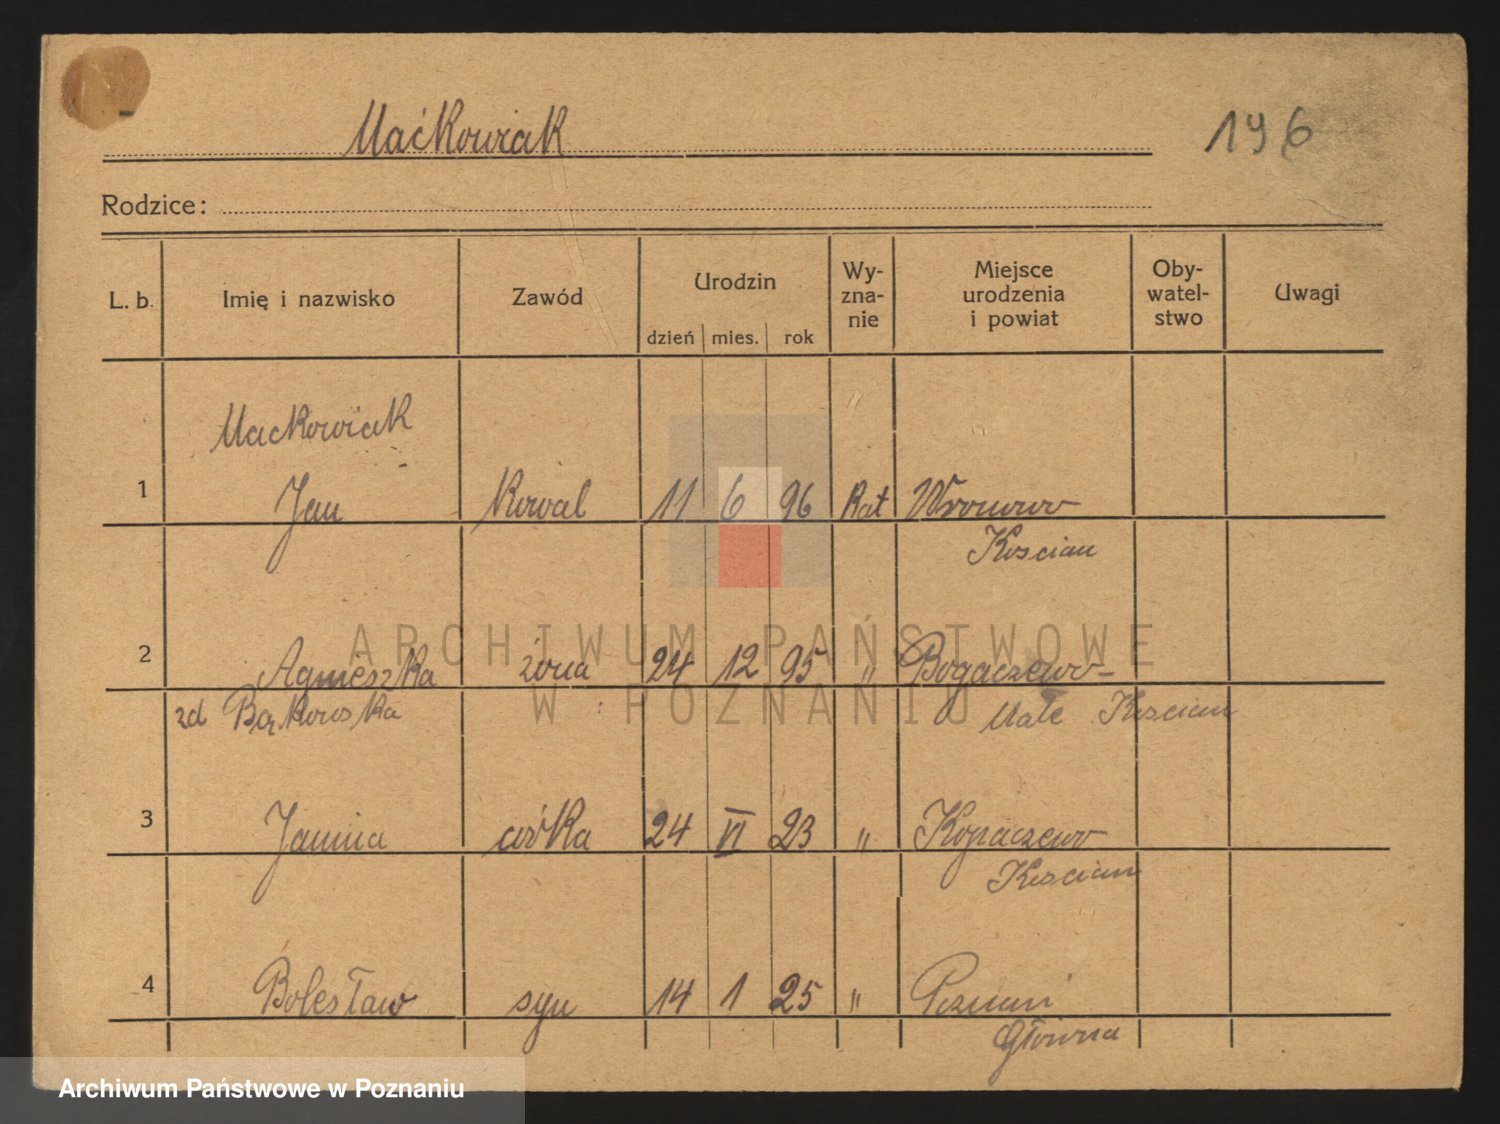 Maćkowiak
196
Rodzice:
L. b. Imię i nazwisko Zawód Urodzin dzień mies. rok Wy-zna-nie Miejsce urodzenia i powiat Oby-watel-stwo Uwagi
Mackowiak
1 Jan Kowal 11 6 96 Kat Wronowo
Koscian
2 Agnieszka żona 24 12 95 " Bogaczewo-
zd Bąkowska Małe Koscian
3 Janina córka 24 VI 23 " Kopaczewo
Koscian
4 Bolesław syn 14 1 25 " Poznań
Główna
ARCHIWUM PAŃSTWOWE
W POZNANIU
Archiwum Państwowe w Poznaniu